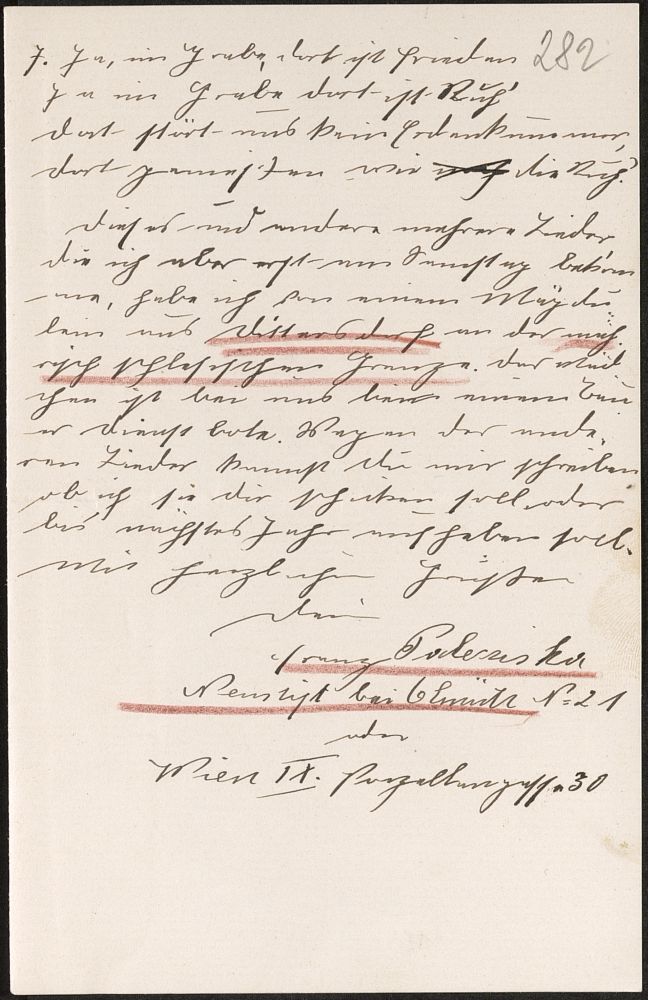 7. Ja, im Grabe, dort ist Frieden 282
Ja im Grabe dort ist Ruh'
dort stört uns kein Erdenkummer,
dort genießen wir die Ruh'.
Dieses und andere mehrere Lieder
die ich aber erst am Samstag bekom-
me, habe ich von einem Mägdu
lein aus Dittersdorf an der mäh.
risch schlesischen Grenze. Das Mäd
chen ist bei uns beim einem Bau
er Dienstbote. Wegen der ande-
ren Lieder kannst du mir schreiben
ob ich sie dir schicken soll oder
bis nächstes Jahr aufheben soll.
Mit herzlichen Grüßen
Dein
Franz
Neustift bei Olmütz N= 21
oder
Wien IX. Porzellangasse 30